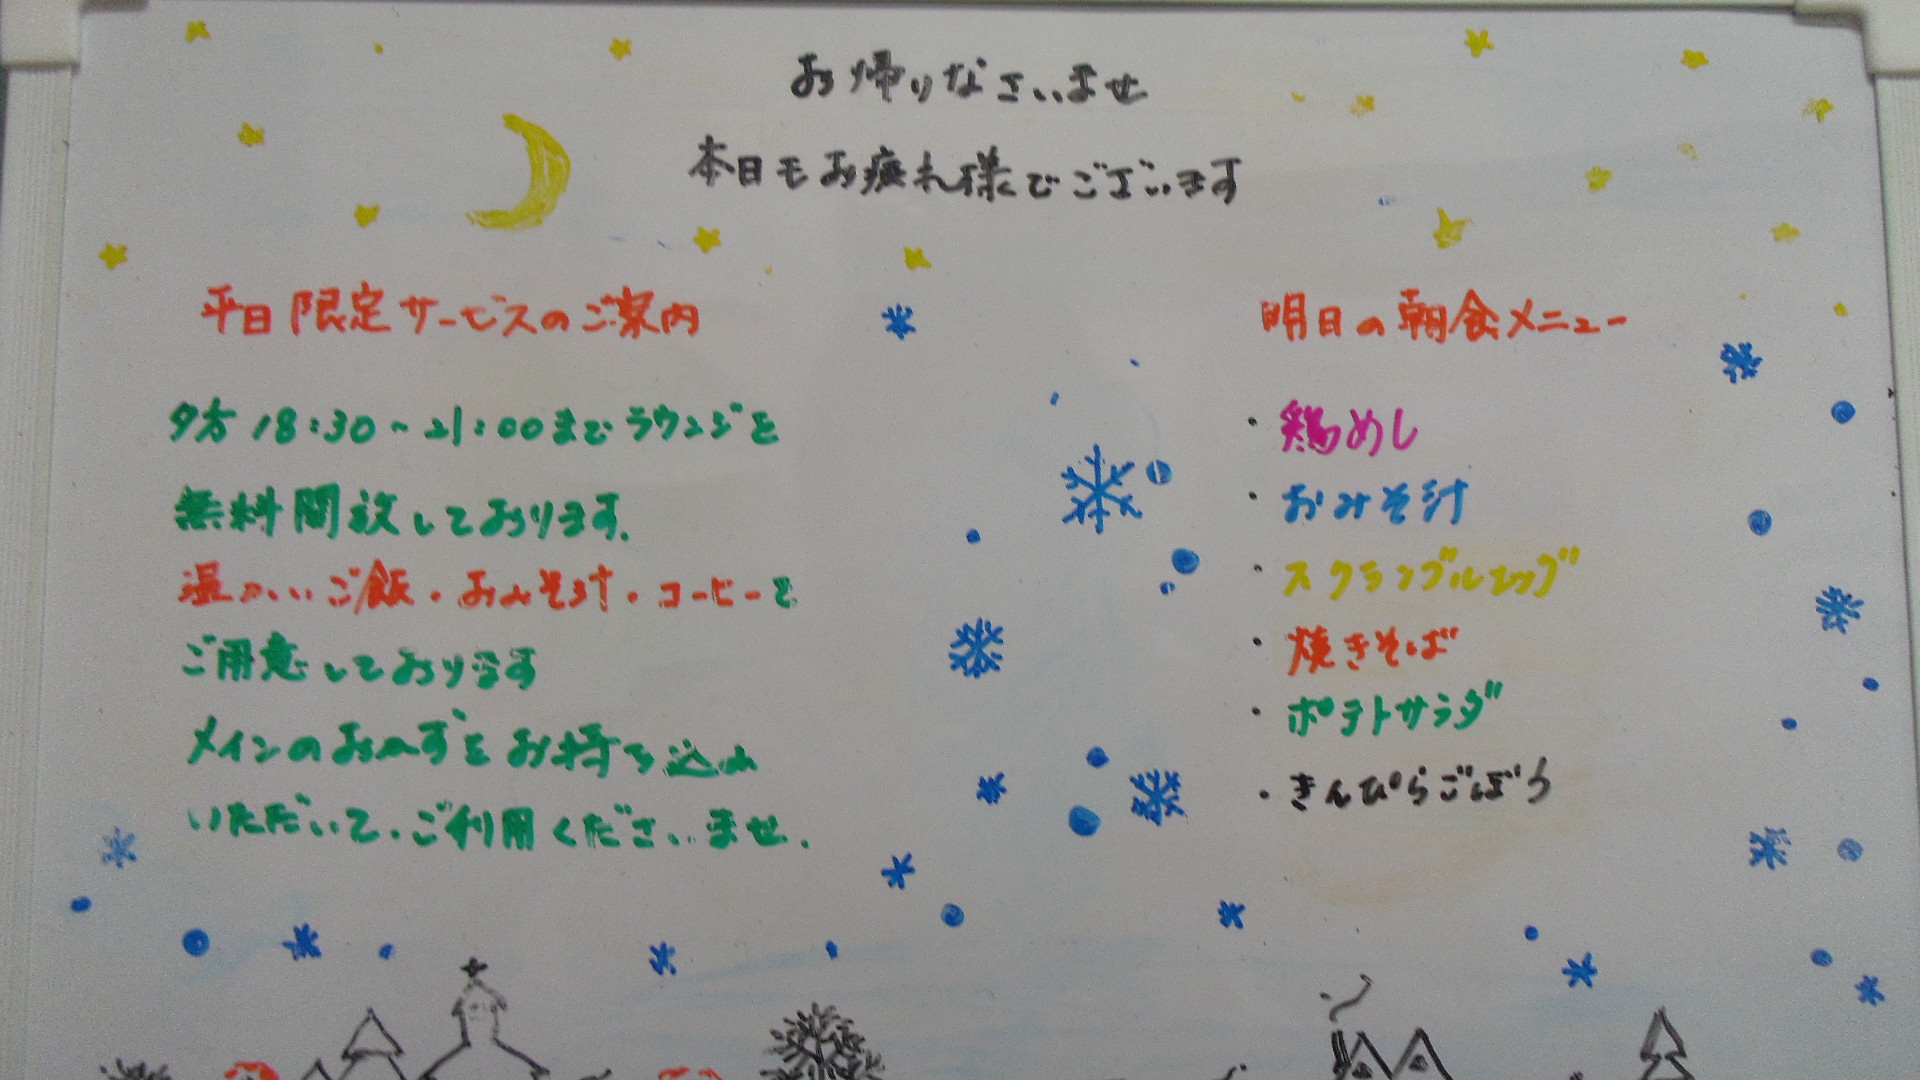 お帰りなさいませ
本日もお疲れ様でございます
平日限定サービスのご案内
夕方18:30~21:00までラウンジを
無料開放しております.
温かいご飯・おみそ汁・コーヒーを
ご用意しております
メインのおかずをお持ち込み
いただいて、ご利用くださいませ.
明日の朝食メニュー
・鶏めし
・おみそ汁
・スクランブルエッグ
・焼きそば
・ポテトサラダ
・きんぴらごぼう